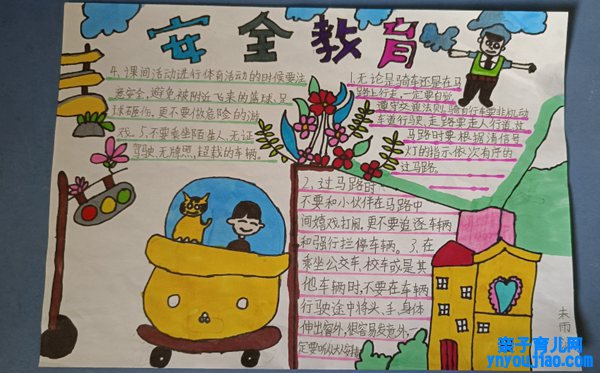 安全教育
4、课间活动进行体育活动的时候要注
意安全,避免被附近飞来的蓝球、足
球砸伤。更不要做危险的游
戏。5、不要乘坐陌生人、无证
驾驶、无牌照,超载的车辆。
1、无论是骑车还是在马
路上行走,一定要自觉
遵守交通法则,骑自行车要非机动
车道行驶,走路要走人行道,过
马路时要根据清信号
灯的指示,依次有序的
过马路。
2、过马路时
不要和小伙伴在马路中
间嬉戏打闹。更不要追逐车辆
和强行拦停车辆。3、在
乘坐公交车、校车或是其
他车辆时,不要在车辆
行驶途中将头、手、身体
伸出窗外,很容易发意外,一
定要听从
未雨
亲子育儿网
ynyoujiao.com